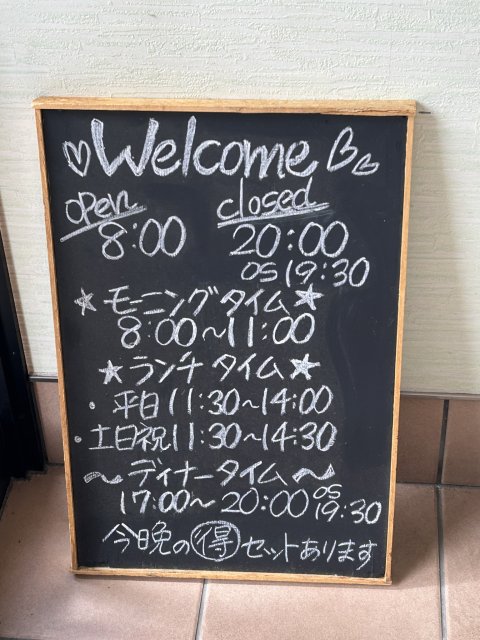 ♡Welcome♡♡
open closed
8:00 20:00
OS 19:30
★モーニングタイム★
8:00〜11:00
★ランチタイム★
・平日 11:30〜14:00
・土日祝 11:30〜14:30
〜ディナータイム〜
17:00〜20:00 OS 19:30
今晩の得セットあります